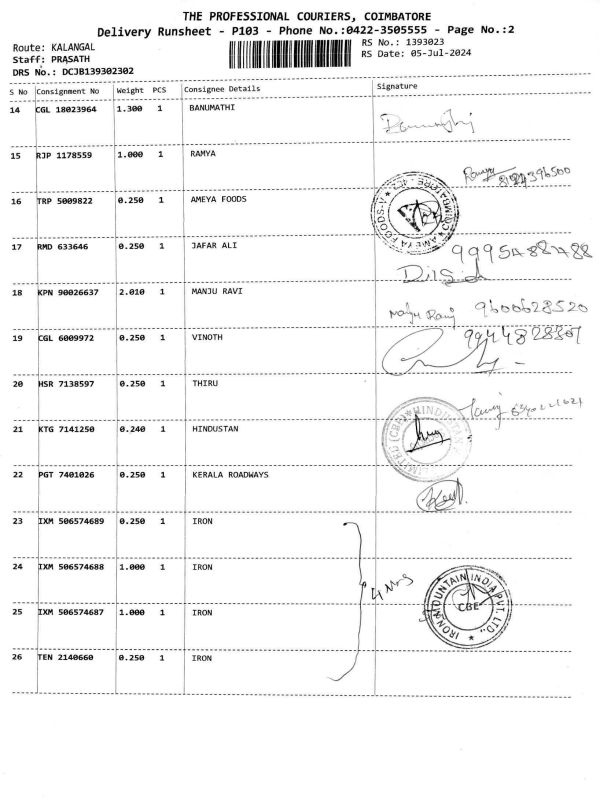 THE PROFESSIONAL COURIERS, COIMBATORE
Delivery Runsheet - P103 - Phone No.:0422-3505555 - Page No.:2
Route: KALANGAL
Staff: PRASATH
DRS No.: DCJB139302302
RS No.: 1393023
RS Date: 05-Jul-2024
S No Consignment No Weight PCS Consignee Details Signature
14 CGL 18023964 1.300 1 BANUMATHI
15 RJP 1178559 1.000 1 RAMYA
16 TRP 5009822 0.250 1 AMEYA FOODS
AMEYA FOODS
17 RMD 633646 0.250 1 JAFAR ALI
Dilsid
18 KPN 90026637 2.010 1 MANJU RAVI
Manju Ravi 9600628520
19 CGL 6009972 0.250 1 VINOTH
20 HSR 7138597 0.250 1 THIRU
21 KTG 7141250 0.240 1 HINDUSTAN
HINDUSTAN LIMITED (CBE)
22 PGT 7401026 0.250 1 KERALA ROADWAYS
23 IXM 506574689 0.250 1 IRON
24 IXM 506574688 1.000 1 IRON
4 Nos
IRON MOUNTAIN INDIA PVT. LTD.,
CBE
25 IXM 506574687 1.000 1 IRON
26 TEN 2140660 0.250 1 IRON